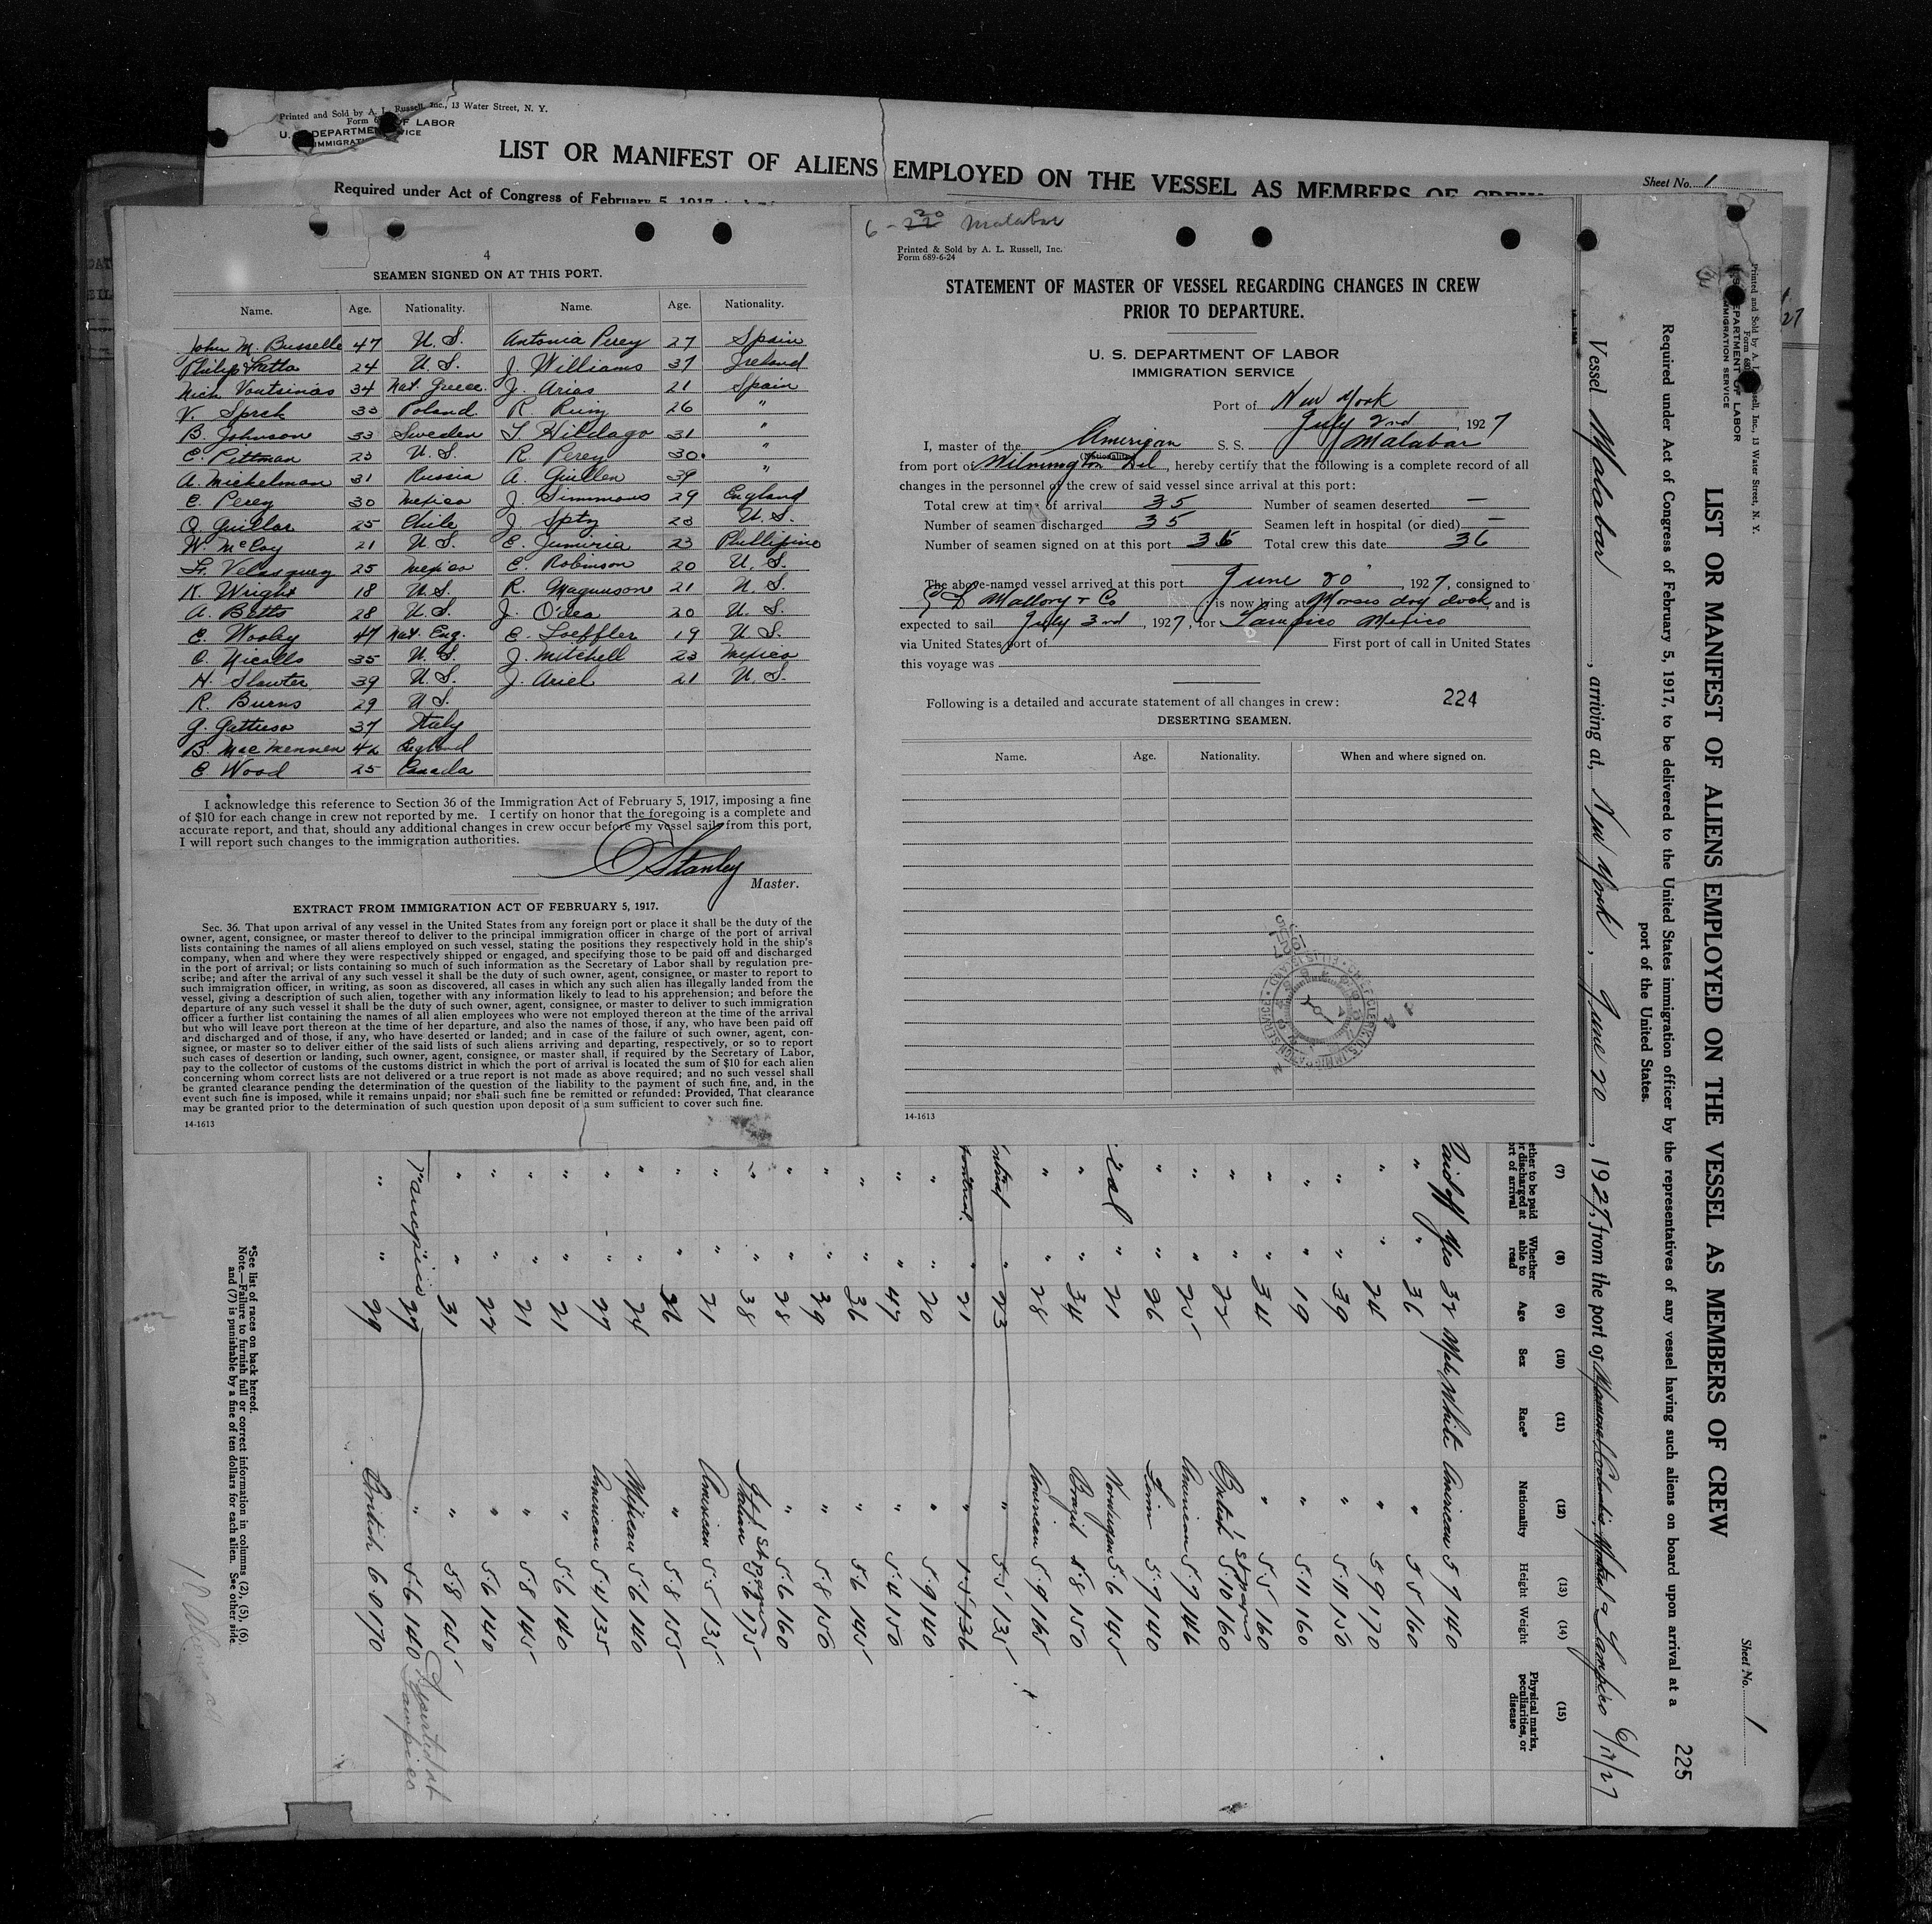 Printed and Sold by A. L. Russell, Inc., 13 Water Street, N. Y.
LIST OR MANIFEST OF ALIENS EMPLOYED ON THE VESSEL AS MEMBERS OF CREW
Required under Act of Congress of February 5, 1917
Sheet No. 1
4
SEAMEN SIGNED ON AT THIS PORT.
Name. Age. Nationality. Name. Age. Nationality.
John M. Busselle 47 U. S. Antonia Perey 27 Spain
Philip 24 U. S. J. Williams 37 Ireland
Nick Voutsinas 34 Nat. Greece. J. Arias 21 Spain
V. Sprck 33 Poland R. Ruiz 26 "
B. Johnson 33 Sweden T. Hildago 31 "
C. Pittman 23 U. S. R. Perey 30 "
A. Mickelman 31 Russia A. Guillen 39 "
C. Perey 30 Mexico J. Simmons 29 England
O. Guillar 25 Chile J. Spty 23 U. S.
W. McCoy 21 U. S. E. Jumiria 23 Phillipine
Velasquey 25 Mexico E. Robinson 20 U. S.
K. Wright 18 U. S. R. Magnuson 21 U. S.
A. Betts 28 U. S. J. O'dea 20 U. S.
E. Wooley 47 Nat. Eng. E. Loeffler 19 U. S.
C. Nicolls 35 U. S. J. Mitchell 23 Mexico
H. Slawter 39 U. S. J. Ariel 21 U. S.
R. Burns 29 U S.
G. Gattuso 37 Italy
B. MacMennen 42 England
C. Wood 25 Canada
I acknowledge this reference to Section 36 of the Immigration Act of February 5, 1917, imposing a fine
of $10 for each change in crew not reported by me. I certify on honor that the foregoing is a complete and
accurate report, and that, should any additional changes in crew occur before my vessel sails from this port,
I will report such changes to the immigration authorities.
Stanley
Master.
EXTRACT FROM IMMIGRATION ACT OF FEBRUARY 5, 1917.
Sec. 36. That upon arrival of any vessel in the United States from any foreign port or place it shall be the duty of the
owner, agent, consignee, or master thereof to deliver to the principal immigration officer in charge of the port of arrival
lists containing the names of all aliens employed on such vessel, stating the positions they respectively hold in the ship's
company, when and where they were respectively shipped or engaged, and specifying those to be paid off and discharged
in the port of arrival; or lists containing so much of such information as the Secretary of Labor shall by regulation pre-
scribe; and after the arrival of any such vessel it shall be the duty of such owner, agent, consignee, or master to report to
such immigration officer, in writing, as soon as discovered, all cases in which any such alien has illegally landed from the
vessel, giving a description of such alien, together with any information likely to lead to his apprehension; and before the
departure of any such vessel it shall be the duty of such owner, agent, consignee, or master to deliver to such immigration
officer a further list containing the names of all alien employees who were not employed thereon at the time of the arrival
but who will leave port thereon at the time of her departure, and also the names of those, if any, who have been paid off
and discharged and of those, if any, who have deserted or landed; and in case of the failure of such owner, agent, con-
signee, or master so to deliver either of the said lists of such aliens arriving and departing, respectively, or so to report
such cases of desertion or landing, such owner, agent, consignee, or master shall, if required by the Secretary of Labor,
pay to the collector of customs of the customs district in which the port of arrival is located the sum of $10 for each alien
concerning whom correct lists are not delivered or a true report is not made as above required; and no such vessel shall
be granted clearance pending the determination of the question of the liability to the payment of such fine, and, in the
event such fine is imposed, while it remains unpaid; nor shall such fine be remitted or refunded: Provided, That clearance
may be granted prior to the determination of such question upon deposit of a sum sufficient to cover such fine.
14-1613
6-20 Malabar
Printed & Sold by A. L. Russell, Inc.
Form 689-6-24
STATEMENT OF MASTER OF VESSEL REGARDING CHANGES IN CREW
PRIOR TO DEPARTURE.
U. S. DEPARTMENT OF LABOR
IMMIGRATION SERVICE
Port of New York
July 2nd, 1927
I, master of the American S. S. Malabar
(Nationality)
from port of Wilmington Del, hereby certify that the following is a complete record of all
changes in the personnel of the crew of said vessel since arrival at this port:
Total crew at time of arrival 35 Number of seamen deserted —
Number of seamen discharged 35 Seamen left in hospital (or died) —
Number of seamen signed on at this port 36 Total crew this date 36
The above-named vessel arrived at this port June 20, 1927, consigned to
C D Mallory & Co is now lying at Morses dry dock, and is
expected to sail July 3rd, 1927, for Tampico Mexico
via United States port of First port of call in United States
this voyage was
Following is a detailed and accurate statement of all changes in crew: 224
DESERTING SEAMEN.
Name. Age. Nationality. When and where signed on.
14-1613
Printed and Sold by A. L. Russell, Inc., 13 Water Street, N. Y.
U. S. DEPARTMENT OF LABOR
IMMIGRATION SERVICE
Sheet No. 1
LIST OR MANIFEST OF ALIENS EMPLOYED ON THE VESSEL AS MEMBERS OF CREW
Required under Act of Congress of February 5, 1917, to be delivered to the United States immigration officer by the representatives of any vessel having such aliens on board upon arrival at a
port of the United States.
225
Vessel Malabar, arriving at New York, June 20, 1927, from the port of Tampico 6/11/27
(7) (8) (9) (10) (11) (12) (13) (14) (15)
Whether able to read Age Sex Race* Nationality Height Weight Physical marks, peculiarities, or disease
Paid off Yes 32 Male White American 5 9 140
" " 36 " 5 5 160
" " 24 " 5 9 170
" " 39 " 5.11 150
" " 19 " 5.11 160
" " 34 " 5.5 160
" " 22 British 5.10 160
" " 25 American 5.9 146
" " 26 5.9 140
" 21 Norwegian 5.6 145
" " 34 Brazil 5.8 150
" " 28 American 5.9 165
" 23 " 5.5 135
" 21 " 136
" " 20 " 5.9 140
" " 47 " 5.4 150
" " 36 " 5.6 145
" " 39 " 5.8 150
" " 28 " 5.6 160
" " 38 Italian 5.6 175
" " 21 American 5.5 135
" " 36 " 5.8 155
" " 24 Mexican 5.6 140
" " 27 American 5.4 135
" " 21 " 5.6 140
" " 21 " 5.8 145
" " 27 " 5.6 140
" " 31 " 5.8 145
" 27 " 5.6 140 Deserted at Tampico
" " 29 British 6.0 170
*See list of races on back hereof.
Note.—Failure to furnish full or correct information in columns (2), (5), (6),
and (7) is punishable by a fine of ten dollars for each alien. See other side.